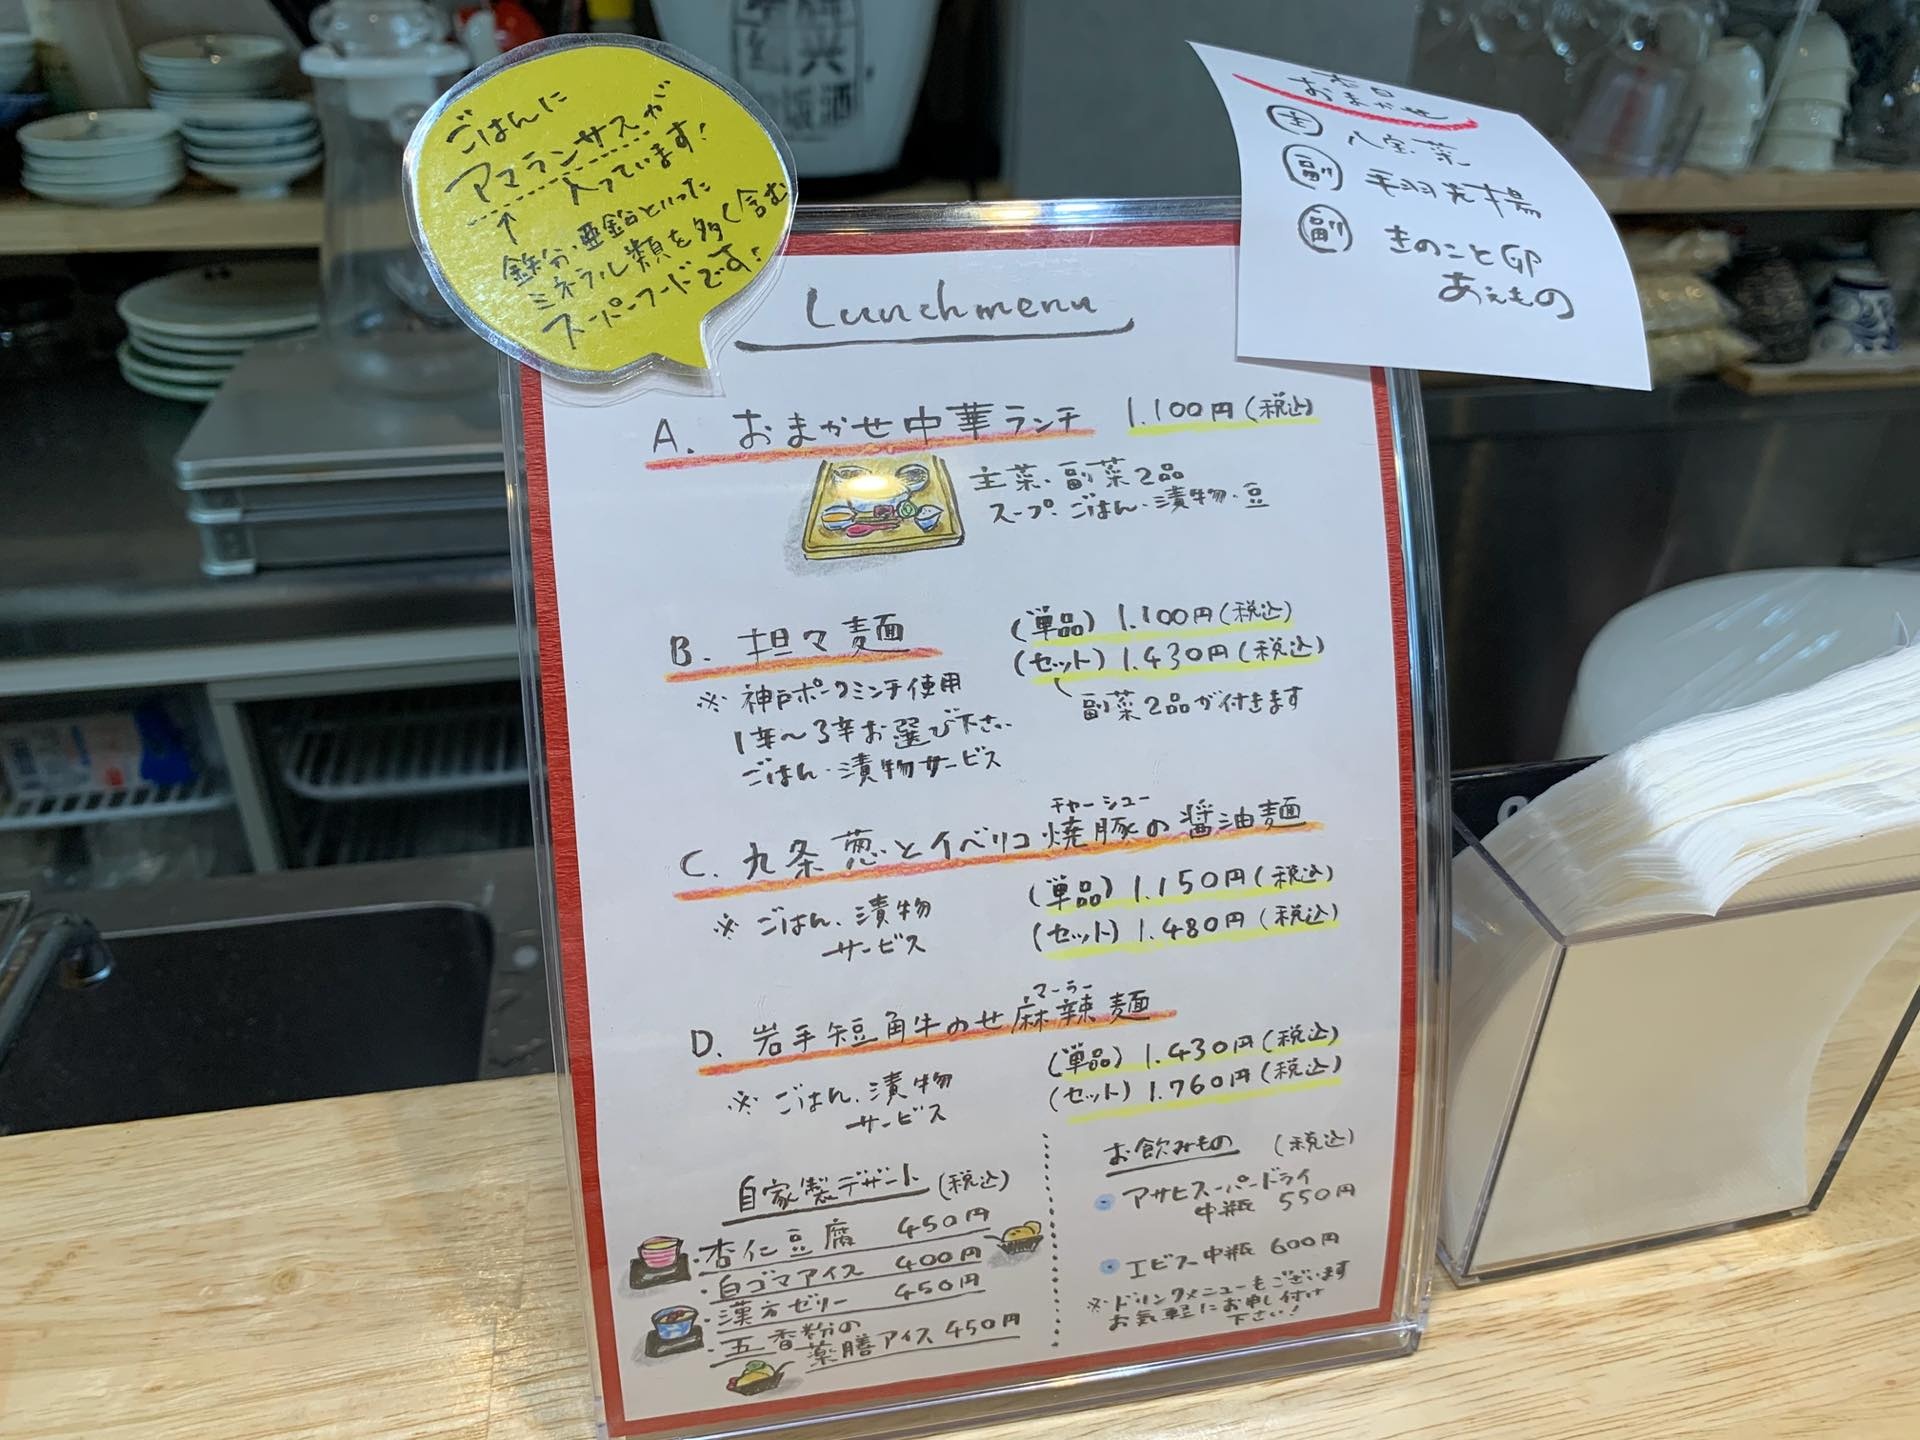 ごはんに
アマランサスが
入っています!
↑
鉄分・亜鉛といった
ミネラル類を多く含む
スーパーフードです!
本日
おまかせ
主 八宝菜
副 手羽先揚
副 きのことGP
あえもの
Lunch menu
A. おまかせ中華ランチ 1.100円(税込)
主菜、副菜2品
スープ、ごはん、漬物・豆
B. 担々麺 (単品) 1.100円(税込)
(セット) 1.430円(税込)
副菜2品が付きます
※ 神戸ポークミンチ使用
1辛〜3辛お選び下さい
ごはん・漬物サービス
チャーシュー
C. 九条葱とイベリコ焼豚の醤油麺
(単品) 1.150円(税込)
(セット) 1.480円(税込)
※ ごはん、漬物
サービス
マーラー
D. 岩手短角牛のせ麻辣麺
(単品) 1.430円(税込)
(セット) 1.760円(税込)
※ ごはん、漬物
サービス
自家製デザート (税込)
・杏仁豆腐 450円
・白ゴマアイス 400円
・漢方ゼリー 450円
・五香粉の
薬膳アイス 450円
お飲みもの (税込)
アサヒスーパードライ
中瓶 550円
エビス中瓶 600円
※ドリンクメニューもございます
お気軽にお申し付け
下さい!